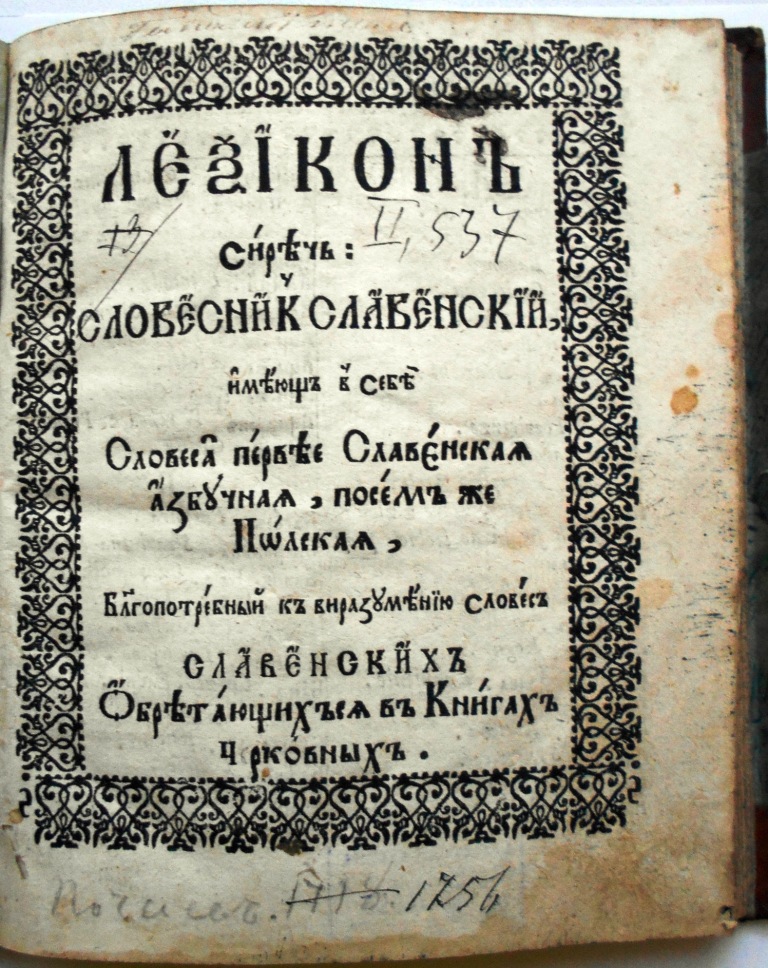 ЛЕѮІКОНЪ
13/ II, 537
Си́рѣчь :
СЛОВЕСНИК СЛАВЕНСКІЙ,
и҆мѣ́ющъ в̾ себѣ̀
Словеса̀ пе́рвѣе Славе́нская
а҆збꙋ́чная , посе́мъ же
Пѡ́лская ,
Бл҃гопотре́бный къ виразꙋмѣ́нїю слове́съ
СЛАВЕНСКИХЪ
Ѻ҆брѣта́ющихъся въ Кни́гахъ
Црко́вныхъ .
Почаев. 1756